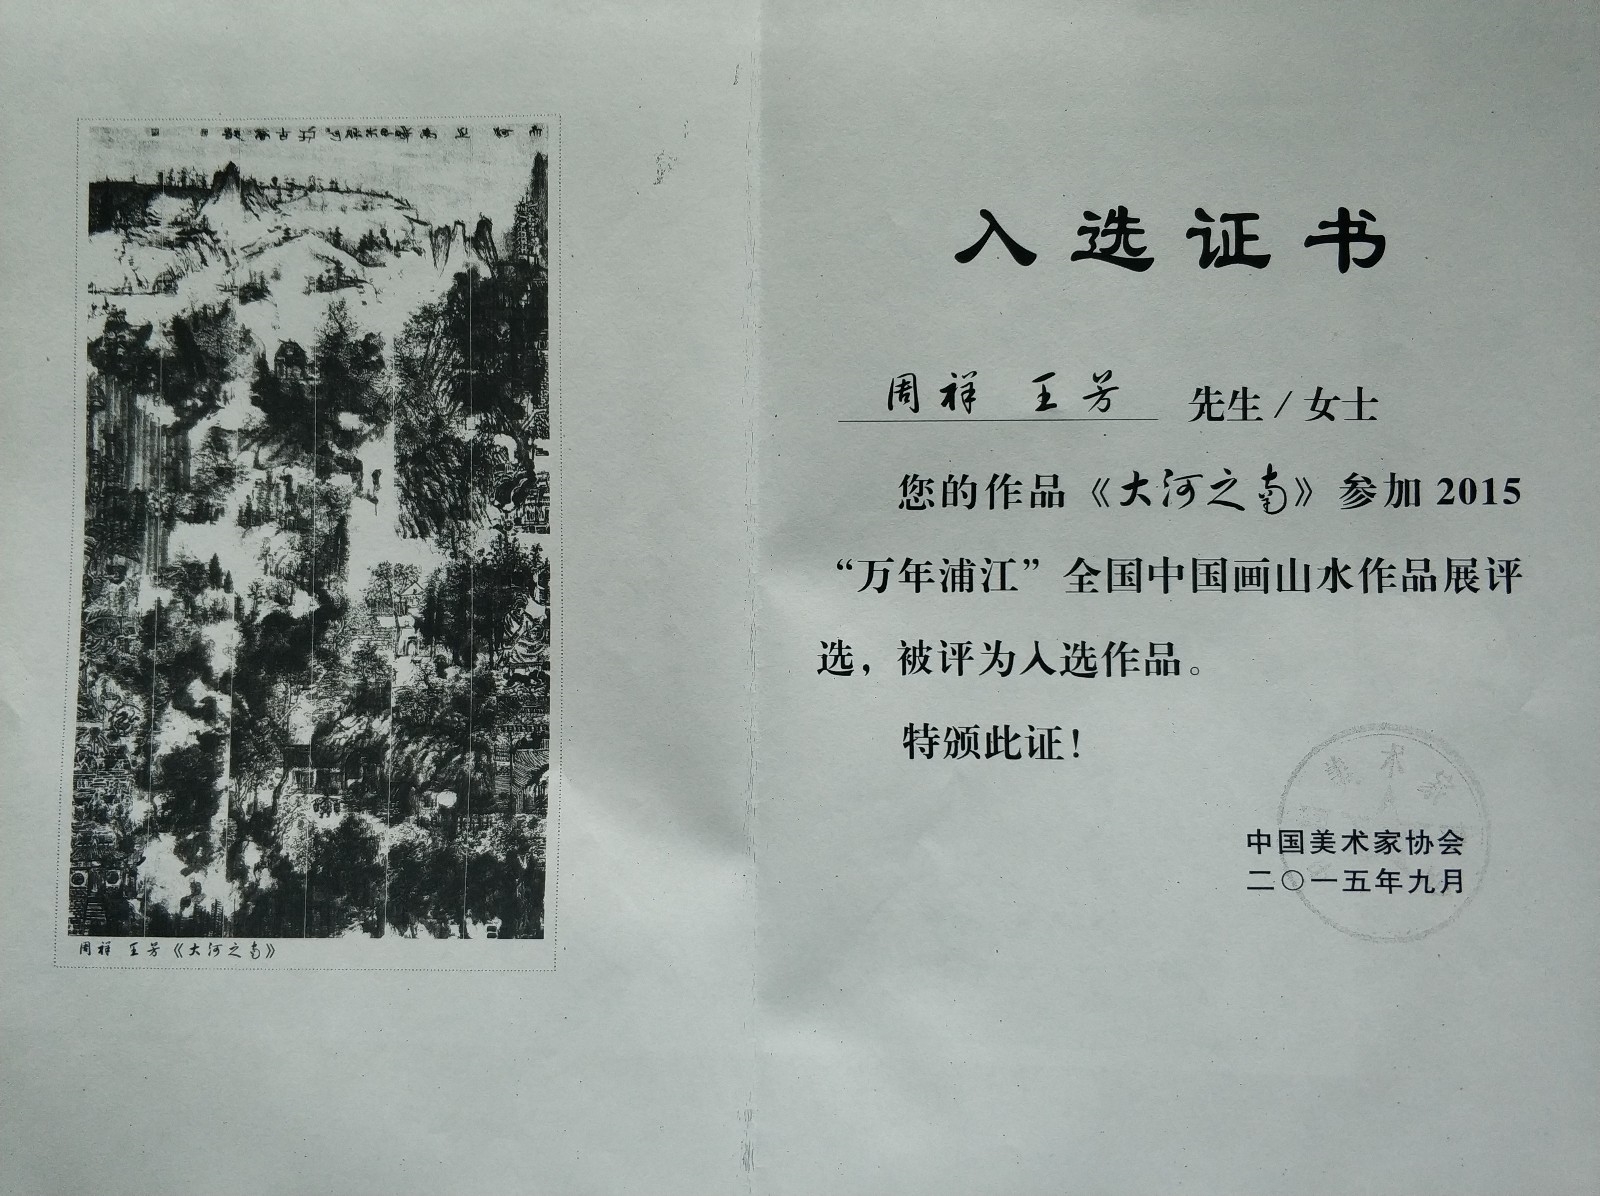 周祥 王芳《大河之南》
入选证书
周祥 王芳 先生/女士
您的作品《大河之南》参加2015
“万年浦江”全国中国画山水作品展评
选，被评为入选作品。
特颁此证！
中国美术家协会
二〇一五年九月